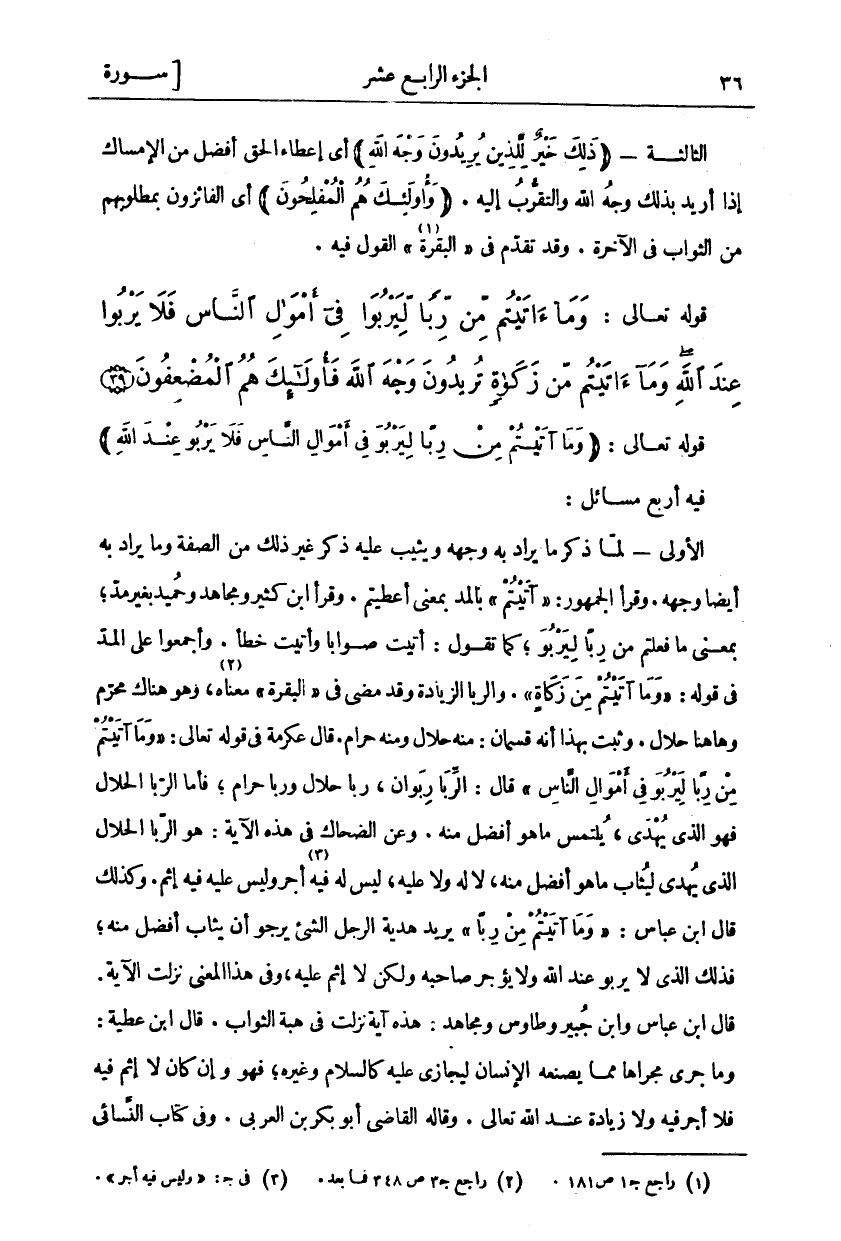 ٣٦ الجزء الرابع عشر [ سـورة
الثالثـة — ﴿ ذَلِكَ خَيْرٌ لِّلَّذِينَ يُرِيدُونَ وَجْهَ اللَّهِ ﴾ أى إعطاء الحق أفضل من الإمساك
إذا أريد بذلك وجهُ الله والتقرُّبُ إليه . ﴿ وَأُولَئِكَ هُمُ الْمُفْلِحُونَ ﴾ أى الفائزون بمطلوبهم
من الثواب فى الآخرة . وقد تقدّم فى « البقرة (١) » القول فيه .
قوله تعـالى : وَمَآ ءَاتَيْتُم مِّن رِّبًا لِّيَرْبُوَا۟ فِىٓ أَمْوَٰلِ ٱلنَّاسِ فَلَا يَرْبُوا۟
عِندَ ٱللَّهِۖ وَمَآ ءَاتَيْتُم مِّن زَكَوٰةٍ تُرِيدُونَ وَجْهَ ٱللَّهِ فَأُو۟لَـٰٓئِكَ هُمُ ٱلْمُضْعِفُونَ ٣٩
قوله تعـالى : ﴿ وَمَا آتَيْتُمْ مِنْ رِبًّا لِيَرْبُوَ فِى أَمْوَالِ النَّاسِ فَلَا يَرْبُو عِنْدَ اللَّهِ ﴾
فيه أربع مسـائل :
الأولى — لمّا ذكر ما يراد به وجهه ويثيب عليه ذكر غير ذلك من الصفة وما يراد به
أيضا وجهه . وقرأ الجمهور : « آتَيْتُمْ » بالمد بمعنى أعطيتم . وقرأ ابن كثير ومجاهد وحُميد بغير مدّ ؛
بمعـنى ما فعلتم من رِبًّا لِيَرْبُوَ ؛ كما تقـول : أتيت صـوابا وأتيت خطأ . وأجمعوا على المدّ
فى قوله : « وَمَا آتَيْتُمْ مِنْ زَكَاةٍ » . والربا الزيادة وقد مضى فى « البقرة (٢) » معناه ، وهو هناك محرّم
وهاهنا حلال . وثبت بهذا أنه قسمان : منه حلال ومنه حرام . قال عكرمة فى قوله تعالى : « وَمَا آتَيْتُمْ
مِنْ رِبًّا لِيَرْبُوَ فِى أَمْوَالِ النَّاسِ » قال : الرِّبَا رِبَوان ، ربا حلال وربا حرام ؛ فأما الرّبا الحلال
فهو الذى يُهْدَى ، يُلتمس ما هو أفضل منه . وعن الضحاك فى هذه الآية : هو الرّبا الحلال
الذى يُهدى ليُثاب ما هو أفضل منه ، لا له ولا عليه ، ليس له فيه (٣) أجر وليس عليه فيه إثم . وكذلك
قال ابن عباس : « وَمَا آتَيْتُمْ مِنْ رِبًّا » يريد هدية الرجل الشئ يرجو أن يثاب أفضل منه ؛
فذلك الذى لا يربو عند الله ولا يؤجر صاحبه ولكن لا إثم عليه ، وفى هذا المعنى نزلت الآية .
قال ابن عباس وابن جُبير وطاوس ومجاهد : هذه آية نزلت فى هبة الثواب . قال ابن عطية :
وما جرى مجراها ممـا يصنعه الإنسان ليجازى عليه كالسلام وغيره ؛ فهو وإن كان لا إثم فيه
فلا أجر فيه ولا زيادة عنـد الله تعالى . وقاله القاضى أبو بكر بن العربى . وفى كتاب النَّسائى
(١) راجع جـ ١ ص ١٨١ . (٢) راجع جـ ٣ ص ٣٤٨ فـما بعد . (٣) فى جـ : « وليس فيه أجر » .